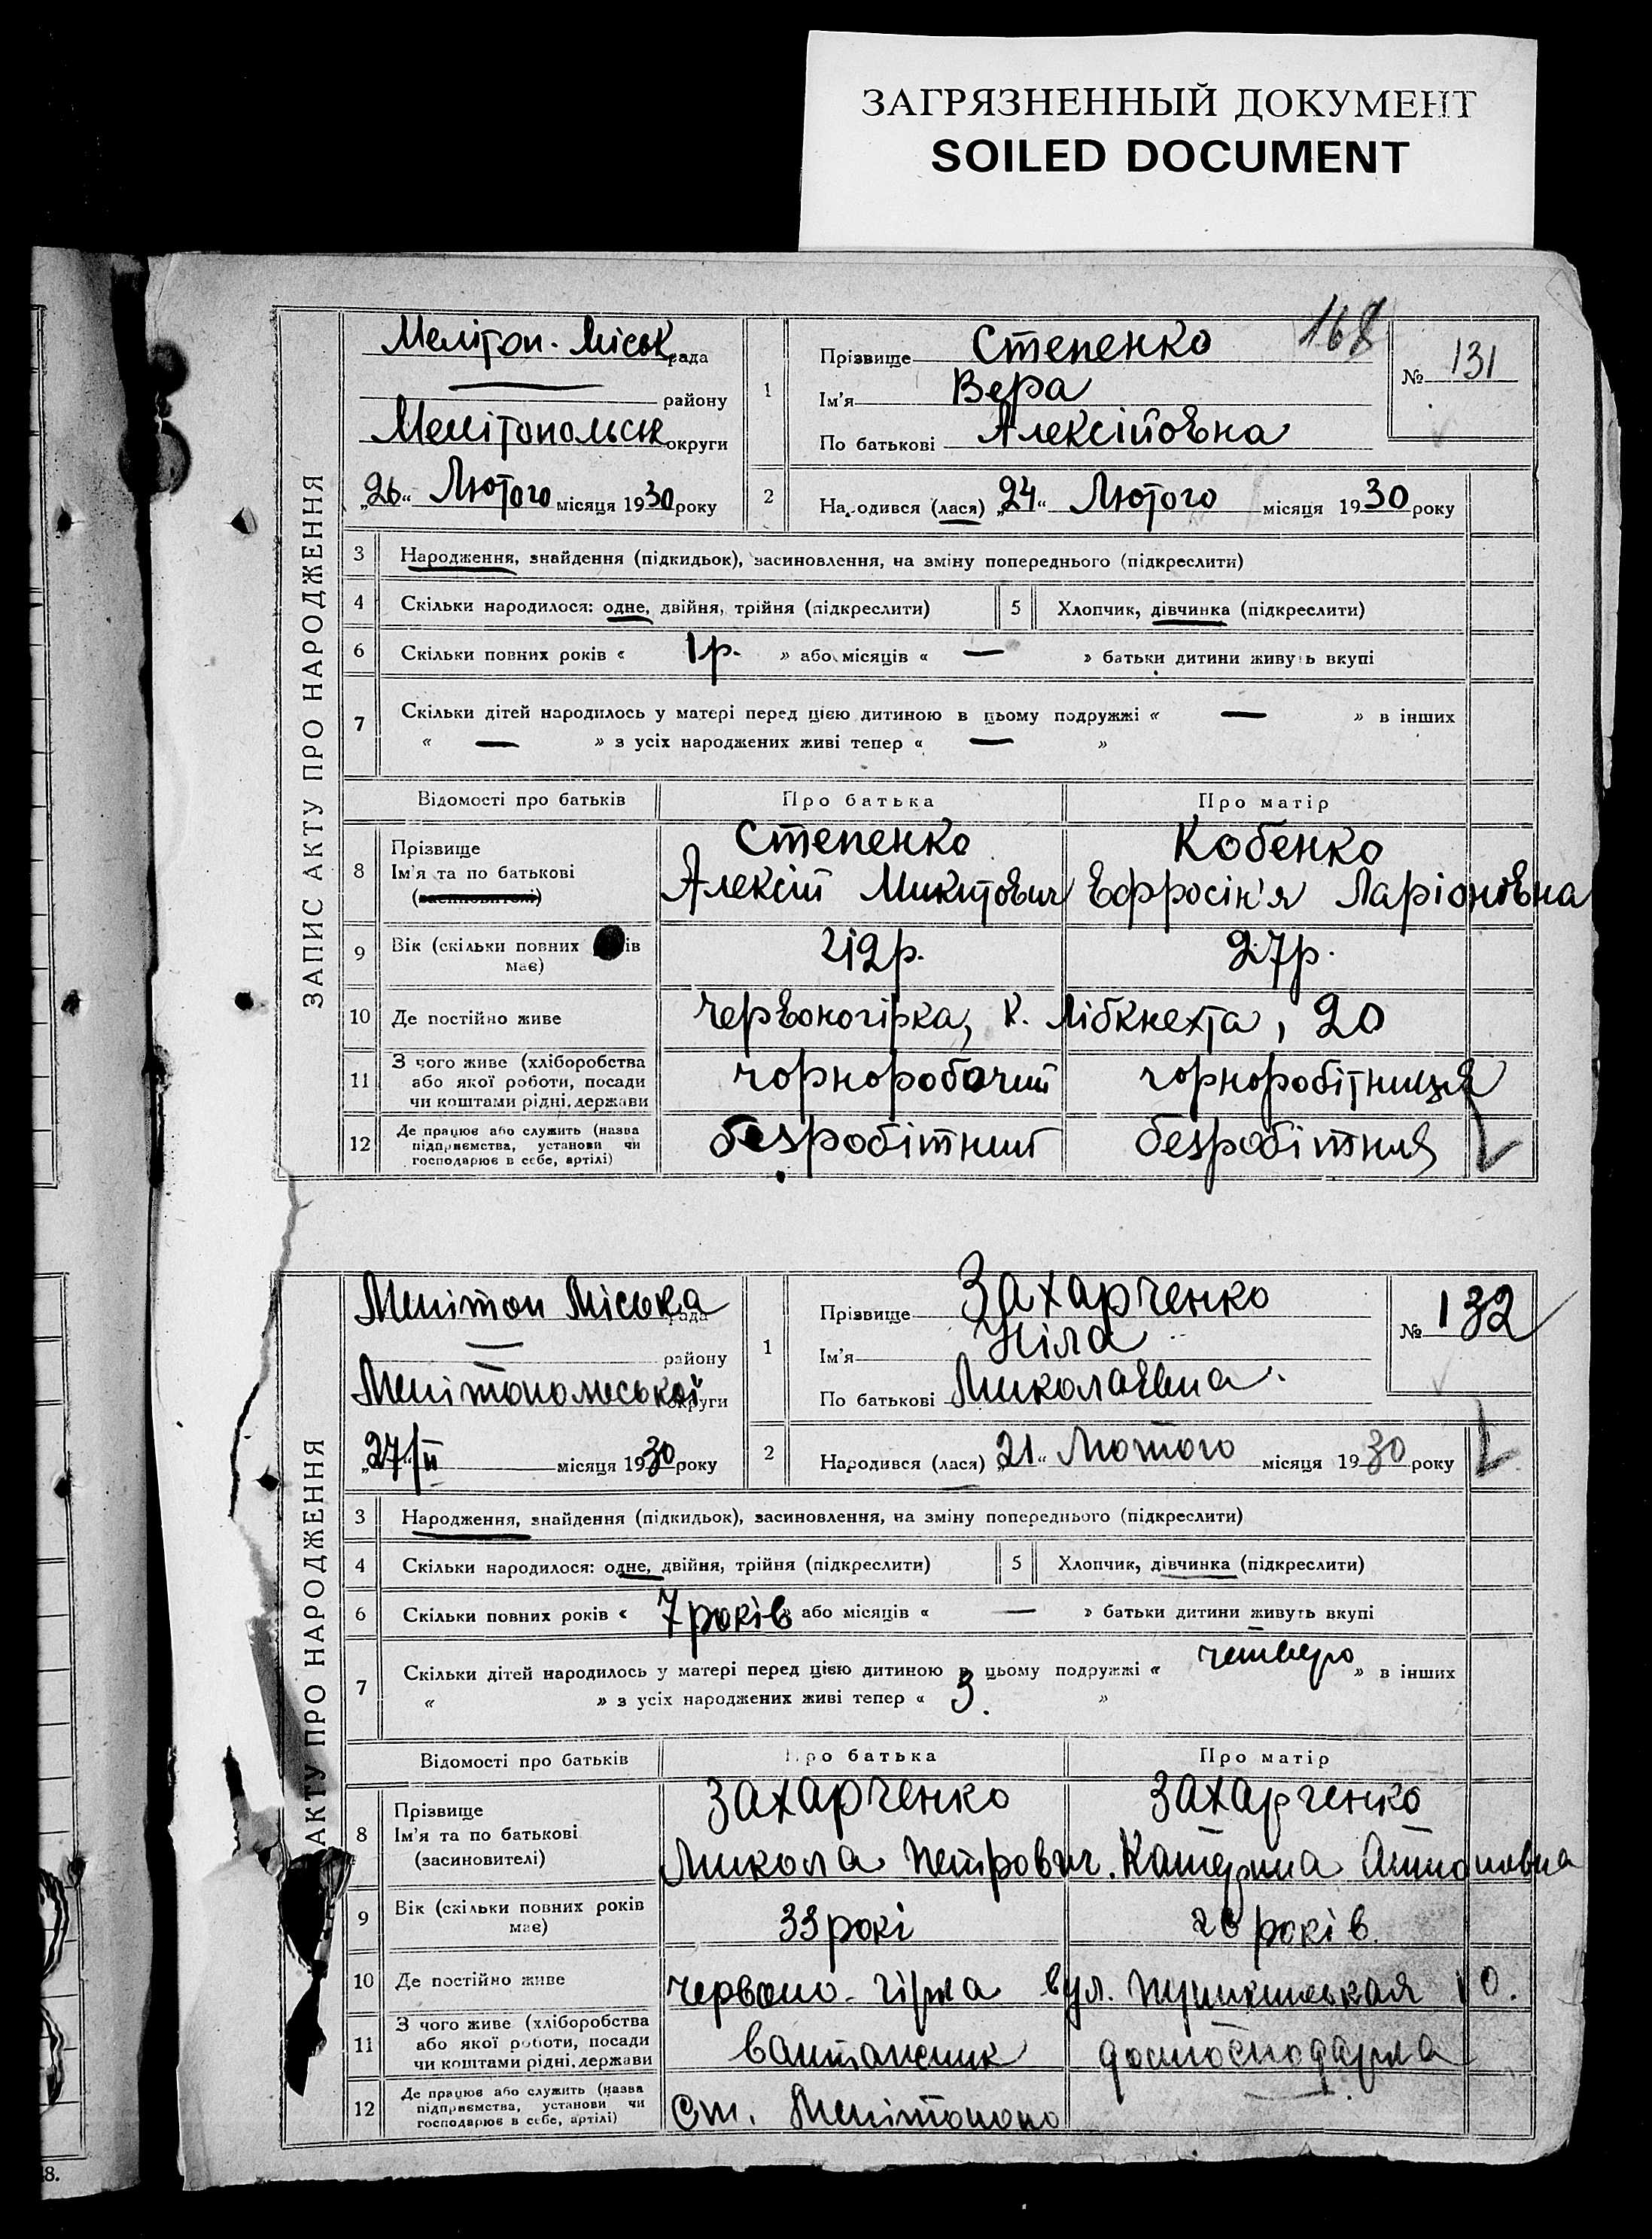 ЗАГРЯЗНЕННЫЙ ДОКУМЕНТ
SOILED DOCUMENT
168
ЗАПИС АКТУ ПРО НАРОДЖЕННЯ
Мелітоп. Міськ рада
району
Мелітопольськ округи
„26“ Лютого місяця 1930 року
1
Прізвище Степенко
Ім'я Вера
По батькові Алексійовна
№ 131
2 Народився (лася) „24“ Лютого місяця 1930 року
3 Народження, знайдення (підкидьок), засиновлення, на зміну попереднього (підкреслити)
4 Скільки народилося: одне, двійня, трійня (підкреслити) 5 Хлопчик, дівчинка (підкреслити)
6 Скільки повних років « 1 р. » або місяців « — » батьки дитини живуть вкупі
7 Скільки дітей народилось у матері перед цією дитиною в цьому подружжі « — » в інших
« — » з усіх народжених живі тепер « — »
Відомості про батьків Про батька Про матір
8 Прізвище Степенко Кобенко
Ім'я та по батькові Алексій Микитович Ефросін'я Ларіоновна
(засиновителі)
9 Вік (скільки повних ів має) р. 27р.
10 Де постійно живе Червоногірка, К. Лібкнехта, 20
11 З чого живе (хліборобства або якої роботи, посади чи коштами рідні, держави чорноробочий чорноробітниця
12 Де працює або служить (назва підприємства, установи чи господарює в себе, артілі) безробітний безробітня
АКТУ ПРО НАРОДЖЕННЯ
Мелітоп Міська рада
— району
Мелітопольської округи
„27“/II місяця 1930 року
1
Прізвище Захарченко
Ім'я Ніла
По батькові Миколаевна
№ 132
2 Народився (лася) „21“ Лютого місяця 1930 року
3 Народження, знайдення (підкидьок), засиновлення, на зміну попереднього (підкреслити)
4 Скільки народилося: одне, двійня, трійня (підкреслити) 5 Хлопчик, дівчинка (підкреслити)
6 Скільки повних років « 7 років » або місяців « — » батьки дитини живуть вкупі
7 Скільки дітей народилось у матері перед цією дитиною в цьому подружжі « четверо » в інших
« » з усіх народжених живі тепер « 3. »
Відомості про батьків Про батька Про матір
8 Прізвище Захарченко Захарченко
Ім'я та по батькові Микола Петрович. Катерина Антоновна
(засиновителі)
9 Вік (скільки повних років має) 33 рокі років.
10 Де постійно живе Червоно-гірка вул. Пушкинськая 10.
11 З чого живе (хліборобства або якої роботи, посади чи коштами рідні, держави вантажник домогосподарка
12 Де працює або служить (назва підприємства, установи чи господарює в себе, артілі) Ст. Мелітополо
8.